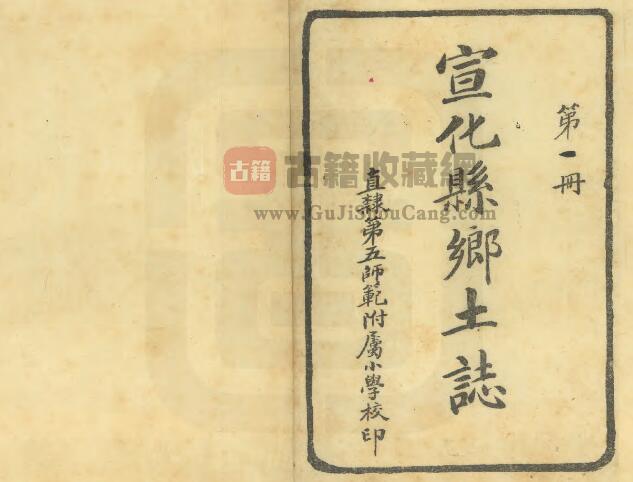 第一冊
宣化縣鄉土誌
直隸第五師範附屬小學校印
古籍
古籍收藏網
www.GuJiShouCang.com